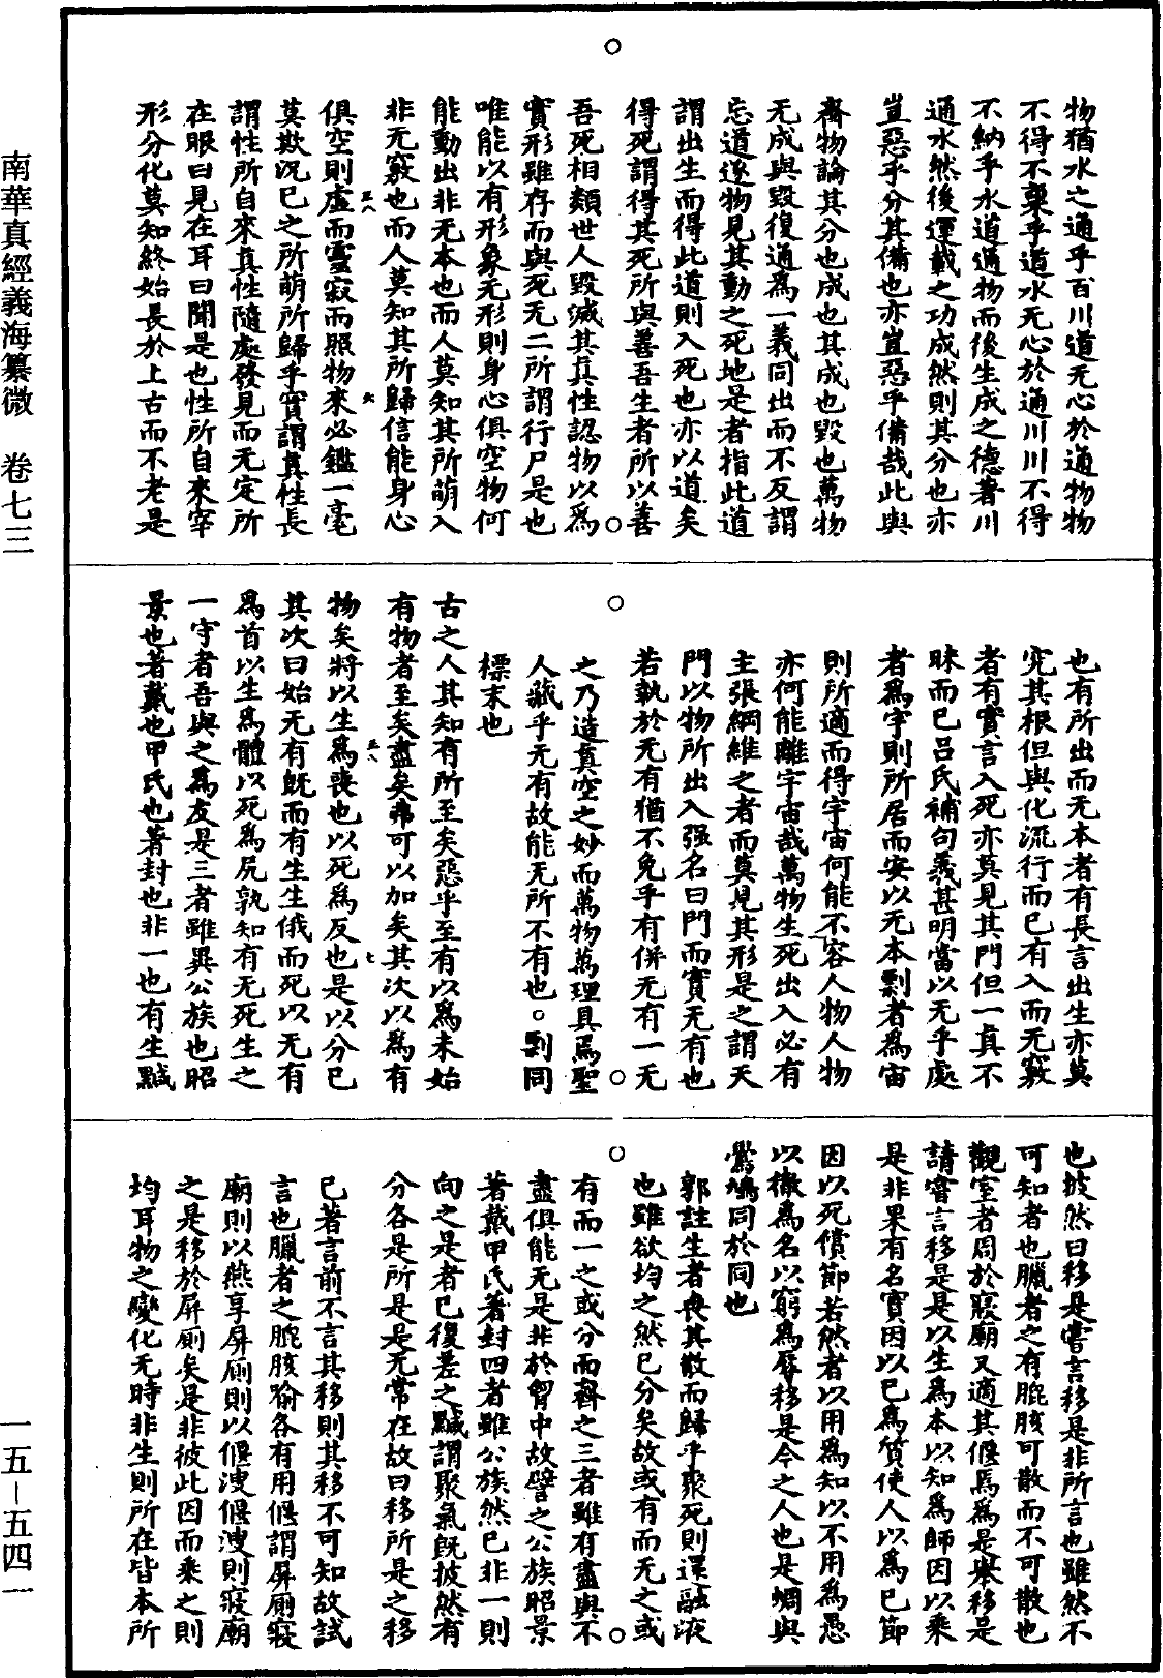 物猶水之通乎百川道无心於通物物
不得不稟乎道水无心於通川川不得
不納乎水道通物而後生成之德著川
通水然後運載之功成然則其分也亦
豈惡乎分其備也亦豈惡乎備哉此與
齊物論其分也成也其成也毀也萬物
无成與毀復通為一義同出而不反謂
忘道逐物見其動之死地是者指此道
謂出生而得此道則入死也亦以道矣
得死謂得其死所與善吾生者所以善
吾死相類世人毀滅其真性認物以為
實形雖存而與死无二所謂行尸是也
唯能以有形象无形則身心俱空物何
能動出非无本也而人莫知其所萌入
非无竅也而人莫知其所歸信能身心
俱空則虛而靈寂而照物來必鑑一毫
莫欺況已之所萌所歸乎實謂真性長
謂性所自來真性隨處發見而无定所
在眼曰見在耳曰聞是也性所自來宰
形分化莫知終始長於上古而不老是
也有所出而无本者有長言出生亦莫
究其根但與化流行而已有入而无竅
者有實言入死亦莫見其門但一真不
昧而已呂氏補句義甚明當以无乎處
者為宇則所居而安以无本剽者為宙
則所適而得宇宙何能不容人物人物
亦何能離宇宙哉萬物生死出入必有
主張綱維之者而莫見其形是之謂天
門以物所出入强名曰門而實无有也
若執於无有猶不免乎有併无有一无
之乃造真空之妙而萬物萬理具焉聖
人藏乎无有故能无所不有也。剽同
標末也
古之人其知有所至矣惡乎至有以為未始
有物者至矣盡矣弗可以加矣其次以為有
物矣將以生為喪也以死為反也是以分已
其次曰始无有既而有生生俄而死以无有
為首以生為體以死為尻孰知有无死生之
一守者吾與之為友是三者雖異公族也昭
景也著戴也甲氏也著封也非一也有生黬
也披然曰移是嘗言移是非所言也雖然不
可知者也臘者之有膍胲可散而不可散也
觀室者周於寢廟又適其偃焉為是舉移是
請嘗言移是是以生為本以知為師因以乘
是非果有名實因以已為質使人以為已節
因以死償節若然者以用為知以不用為愚
以徹為名以窮為辱移是今之人也是蜩與
鷽鳩同於同也
郭註生者喪其散而歸乎聚死則還融液
也雖欲均之然已分矣故或有而无之或
有而一之或分而齊之三者雖有盡與不
盡俱能无是非於胷中故譬之公族昭景
著戴甲氏著封四者雖公族然已非一則
向之是者已復差之黬謂聚氣既披然有
分各是所是是无常在故曰移所是之移
已著言前不言其移則其移不可知故試
言也臘者之膍胲喻各有用偃謂屏廁寢
廟則以燕享屏廁則以偃溲偃溲則寢廟
之是移於屏廁矣是非彼此因而乘之則
均耳物之變化无時非生則所在皆本所
南華真經義海纂微 卷七三
一五—五四一
三八
六
三八
七